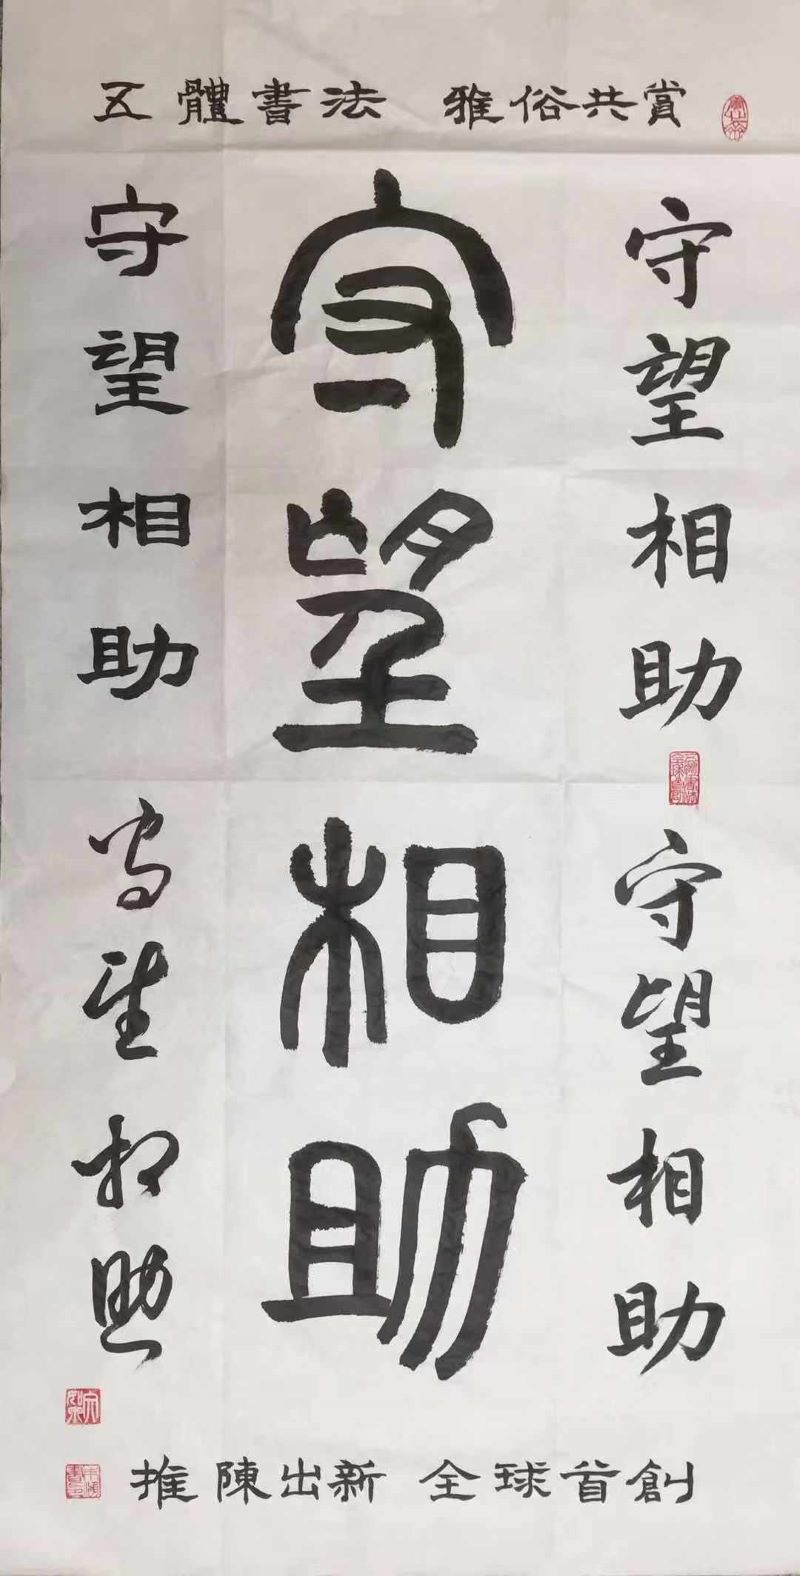 五體書法 雅俗共賞
守望相助
守望相助
守望相助
守望相助
守望相助
推陳出新 全球首創